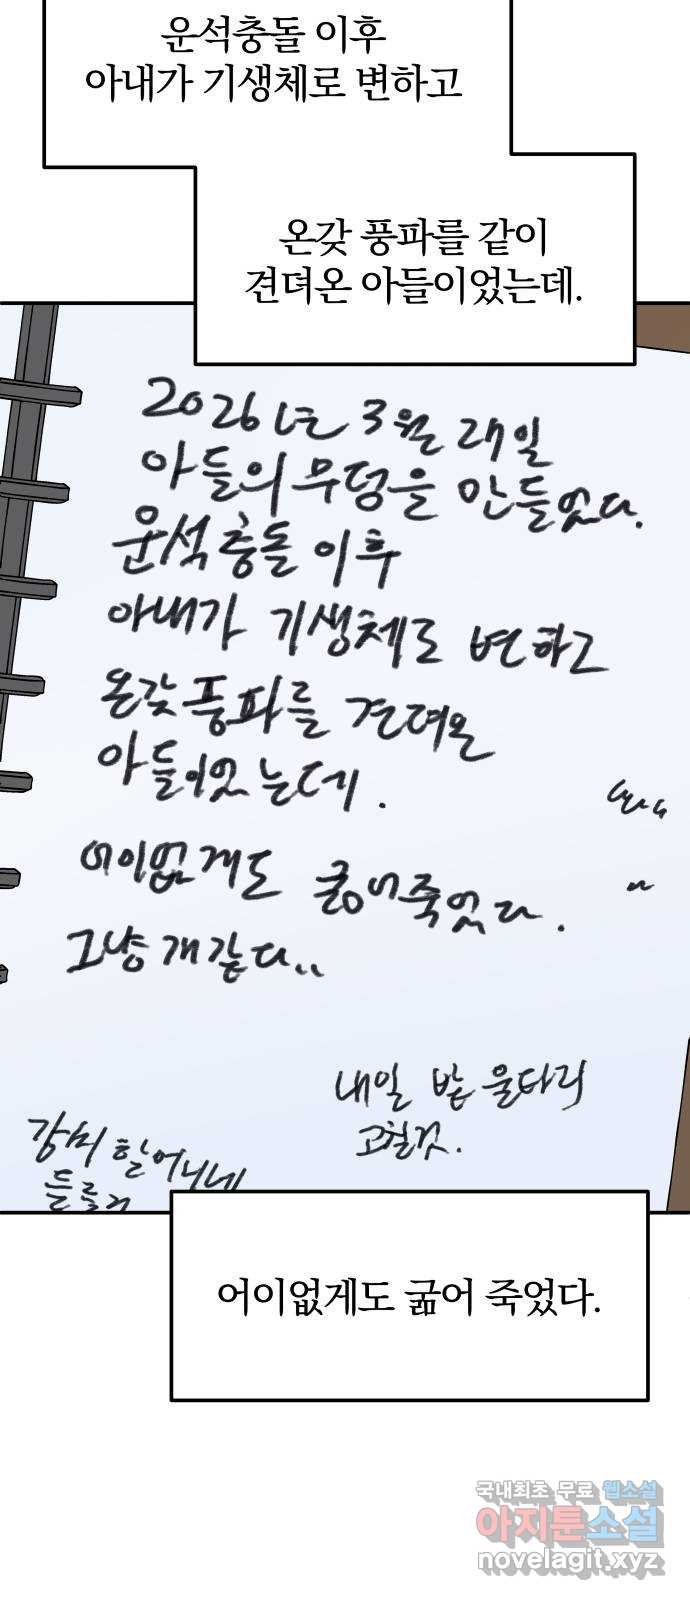 운석충돌 이후
아내가 기생체로 변하고
온갖 풍파를 같이
견뎌온 아들이었는데.
2026년 3월 래일
아들의 무덩을 만들었다.
운석충돌 이후
아내가 기생체로 변하고
온갖풍파를 견뎌온
아들이었는데.
어이없게도 굶어죽었다.
그냥 개같다..
내일 밭 울타리
고칠것.
강씨 할머니네
들를거
어이없게도 굶어 죽었다.
국내최초 무료 웹소설
아지툰소설
novelagit.xyz